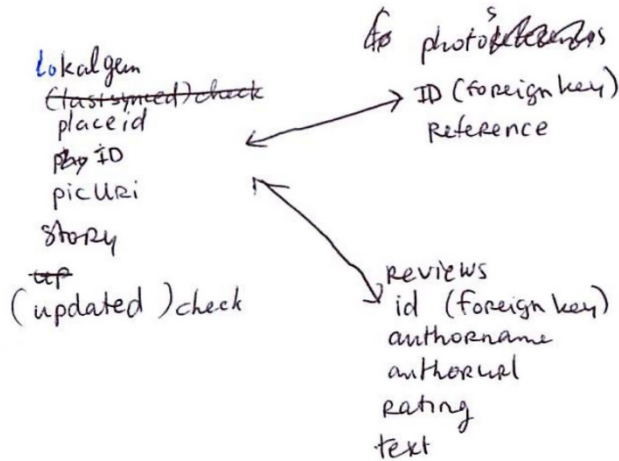 lokalgem
(last synced) check
placeid
ID
picURi
story
up
(updated) check
photos
ID (foreign key)
Reference
Reviews
id (foreign key)
authorname
authorurl
Rating
text